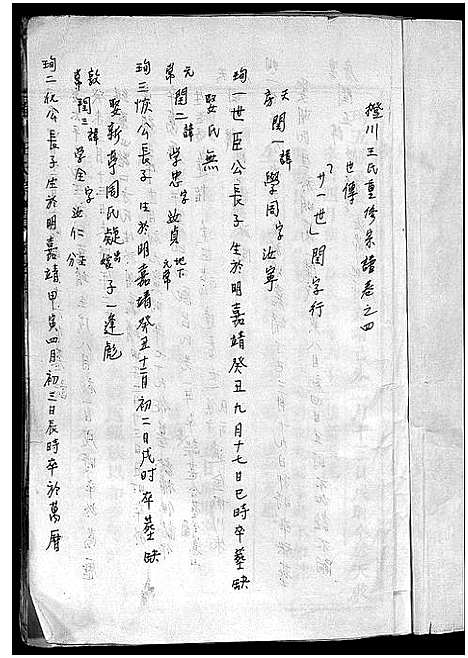 橙川王氏重修宗譜卷之四
世傳
「廿一世」閏字行
天房 閏一 諱學周字汝寧
珣一世臣公長子生於明嘉靖癸丑九月十七日巳時卒塟缺
娶氏無
元 閏二 諱学忠字汝貞
珣三恢公長子生於明嘉靖癸丑十二月初二日戌时卒塟缺
娶新亭周氏 子一逢彪
敦 閏三 諱学全字汝仁
珣二优公長子生於明嘉靖甲寅四月初三日辰時卒於萬曆